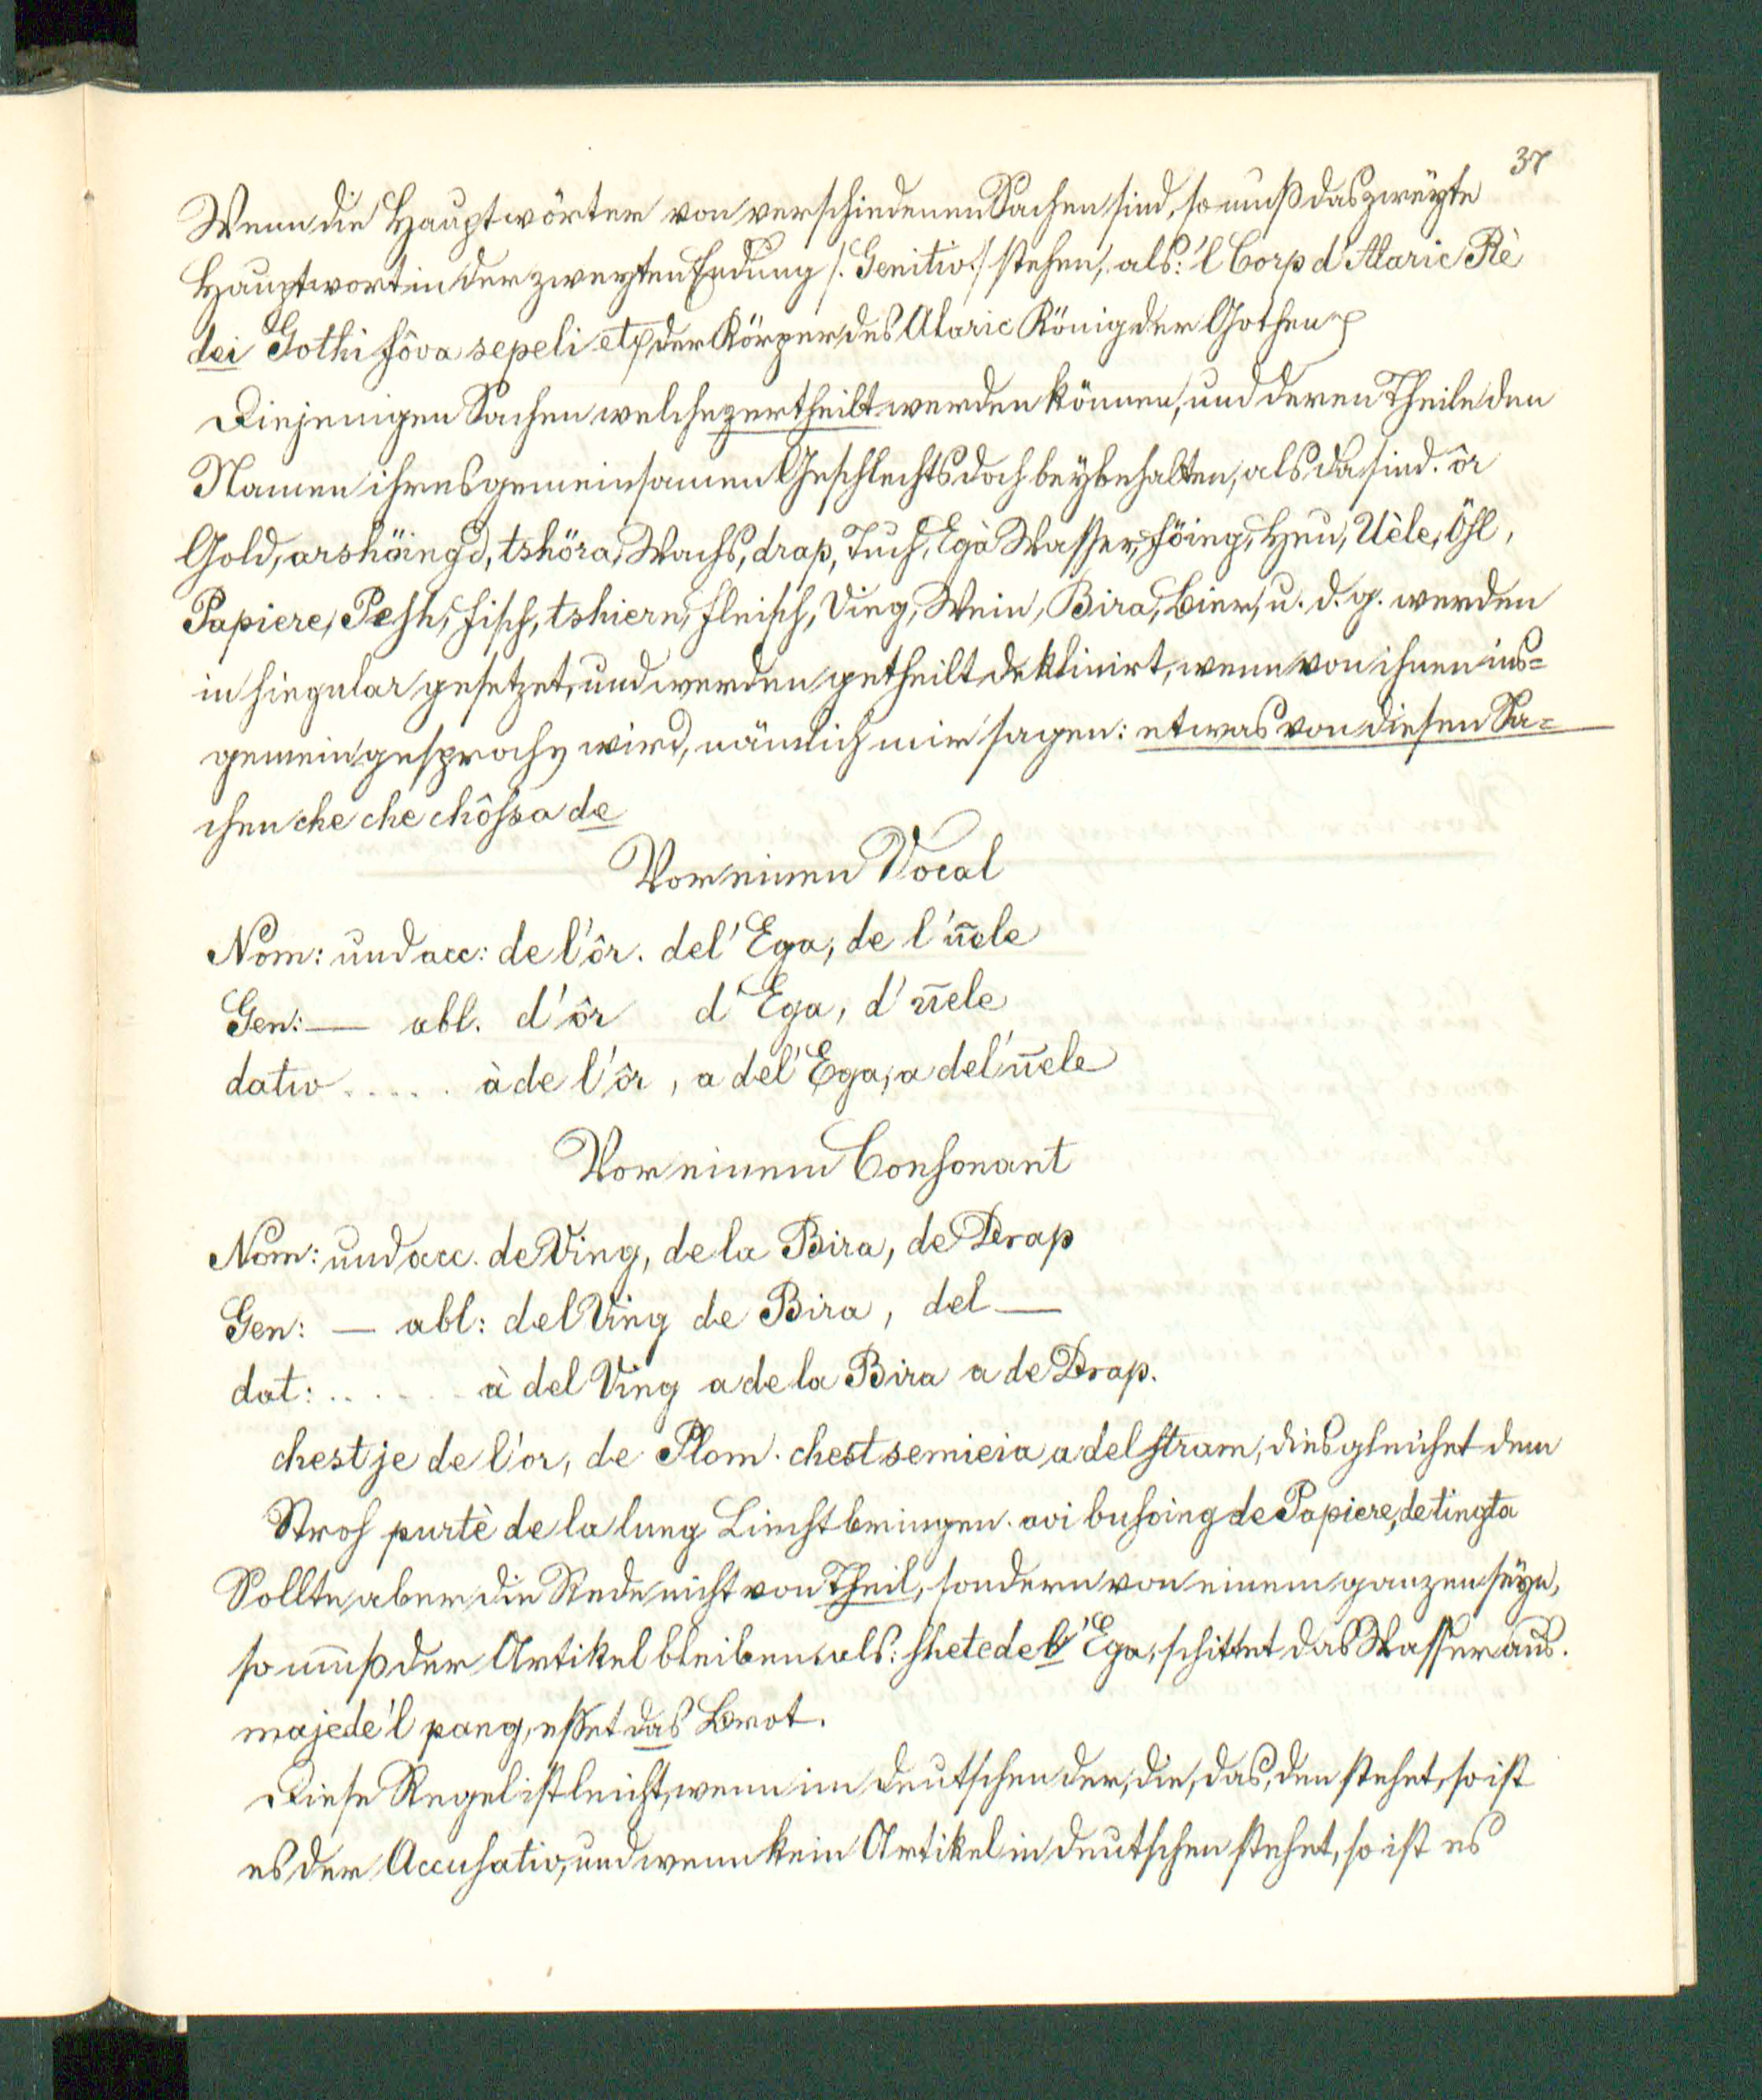 37
Wenn die Hauptwörter von verschiedenen Sachen sind, so muß das zweÿte
Hauptwort in der zweyten Endung /: Genitiv :/ stehen, als: 'l Corp d'Alaric Rè
dei Gothi fôva sepeli etc der Körper des Alaric König der Gothen
Diejenigen Sachen welche zertheilt werden können, und deren Theile den
Namen ihres gemeinsamen Geschlechts doch beÿbehalten, als da sind. ôr
Gold, arshöing d, tshöra, Wachs, drap, Tuch, Egà Wasser,föing, Heu, Uèle, Öhl,
Papiere, Pesh, Fisch, tshiern, Fleisch, Ving, Wein, Bira, Bier, u. d. g. werden
in Singular gesetzet, und werden getheilt deklinirt, wenn von ihnen ins=
gemein gesprochen wird, nämlich wir sagen: etwas von diesen Sa=
chen che che chôssa de
Vor einen Vocal
Nom: und acc: de l'ôr. del' Ega, de l'ūele
Gen: — abl. d'ôr d'Ega, d'ūele
dativ ..... à de l'ôr, a del' Ega, a del'ūele
Vor einem Consonant
Nom: und acc. de Ving, de la Bira, de Drap
Gen: — abl: del Ving de Bira, del —
dat: ...... à del Ving a de la Bira a de Drap.
chest je de l'or, de Plom. chest semieia a del stram, dies gleichet dem
Stroh purtè de la lung Liecht bringen. avi busoing de Papiere, de tingta
Sollte aber die Rede nicht von Theil, sondern von einem ganzen seÿn,
so muß der Artikel bleiben als: shetede l' Ega, schittet das Wasser aus.
majede'l pang, esset das Brot.
Diese Regel ist leicht, wenn im deutschen der, die, das, den stehet, so ist
es der Accusativ, und wenn kein Artikel in deutschen stehet, so ist es